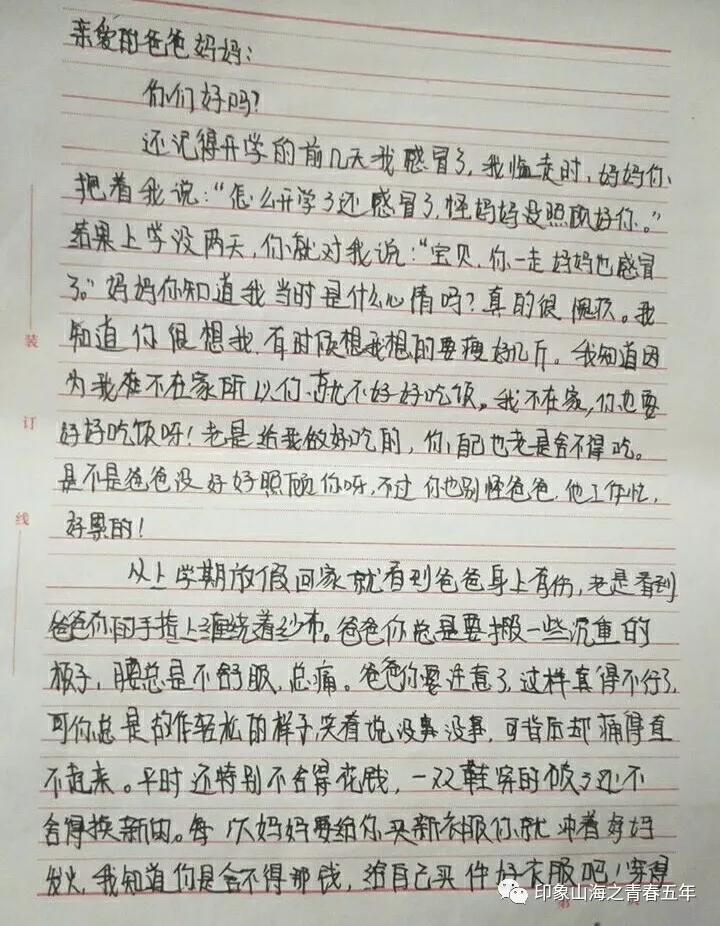 亲爱的爸爸妈妈：
你们好吗？
还记得开学的前几天我感冒了，我临走时，妈妈你
抱着我说：“怎么开学了还感冒了，怪妈妈没照顾好你。”
结果上学没两天，你就对我说：“宝贝，你一走妈妈也感冒
了。”妈妈你知道我当时是什么心情吗？真的很愧疚。我
知道你很想我，有时候想我想的要瘦好几斤。我知道因
为我不在家所以你就不好好吃饭。我不在家，你也要
好好吃饭呀！老是给我做好吃的，你自己也老是舍不得吃。
是不是爸爸没好好照顾你呀，不过你也别怪爸爸，他工作忙，
好累的！
从上学期放假回家就看到爸爸身上有伤，老是看到
爸爸你的手指上缠绕着纱布。爸爸你总是要搬一些沉重的
板子，腰总是不舒服，总痛。爸爸你要注意了，这样真得不行了，
可你总是故作轻松的样子，笑着说没事没事，可背后却痛得直
不起来。平时还特别不舍得花钱，一双鞋穿的破了还不
舍得换新的。每次妈妈要给你买新衣服你就冲着妈妈
发火，我知道你是舍不得那钱，给自己买件好衣服吧！穿得
装
订
线
第
印象山海之青春五年